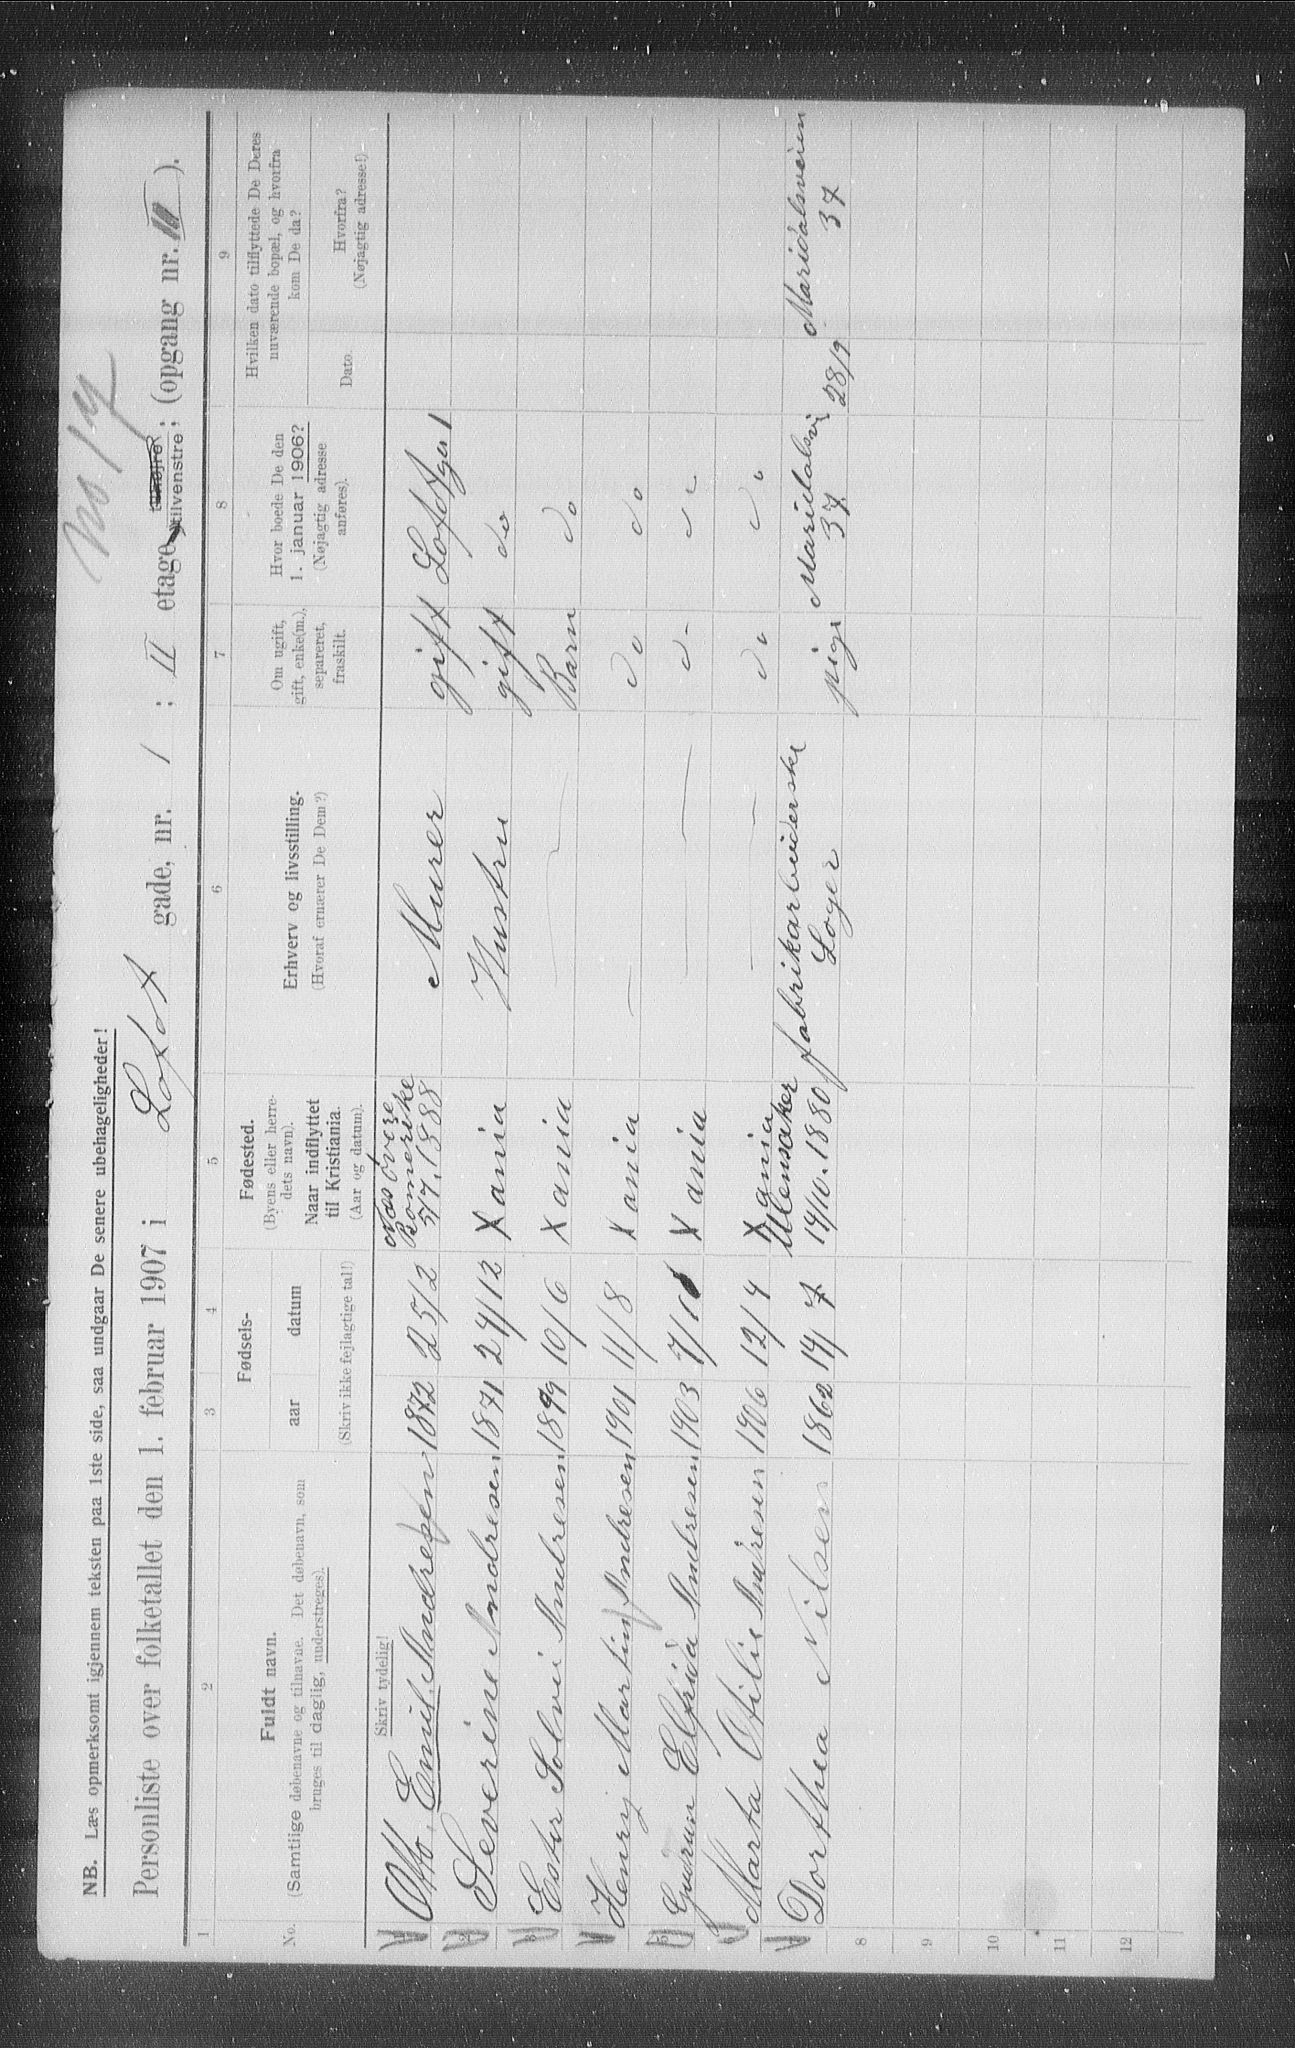 No 14
NB. Læs opmerksomt igjennem teksten paa 1ste side, saa undgaar De senere ubehageligheder!
Personliste over folketallet den 1. februar 1907 i Lofot gade, nr. 1 : II etage tilhøire tilvenstre; (opgang nr. ).
1 2 3 4 5 6 7 8 9
No.
Fuldt navn.
(Samtlige døbenavne og tilnavne. Det døbenavn, som
bruges til daglig, understreges).
Fødsels-
aar datum
(Skriv ikke fejlagtige tal!)
Fødested.
(Byens eller herre-
dets navn).
Naar indflyttet
til Kristiania.
(Aar og datum).
Erhverv og livsstilling.
(Hvoraf ernærer De Dem?)
Om ugift,
gift, enke(m.),
separeret,
fraskilt.
Hvor boede De den
1. januar 1906?
(Nøjagtig adresse
anføres).
Hvilken dato tilflyttede De Deres
nuværende bopæl, og hvorfra
kom De da?
Dato.
Hvorfra?
(Nøjagtig adresse!)
Skriv tydelig!
Otto Emil Andresen 1872 25/2 Næs Øvre Romerike 5/7. 1888 Murer gift Lofotges 1
2 Severine Andresen 1871 24/12 Xania Hustru gift do
3 Ester Solvei Andresen 1899 10/6 Xania — Barn do
Henry Martin Andresen 1901 11/8 Xania — do do
5 Gudrun Elfrida Andresen 1903 7/11 Xania — do do
6 Marta Otilie Andresen 1906 12/4 Xania — do do
Dorthea Nilsen 1862 14/7 Ullensaker 14/10. 1880 fabrikarbeiderske Loger pige Maridalsvi 37 28/9 Maridalsveien 37
8
9
10
11
12